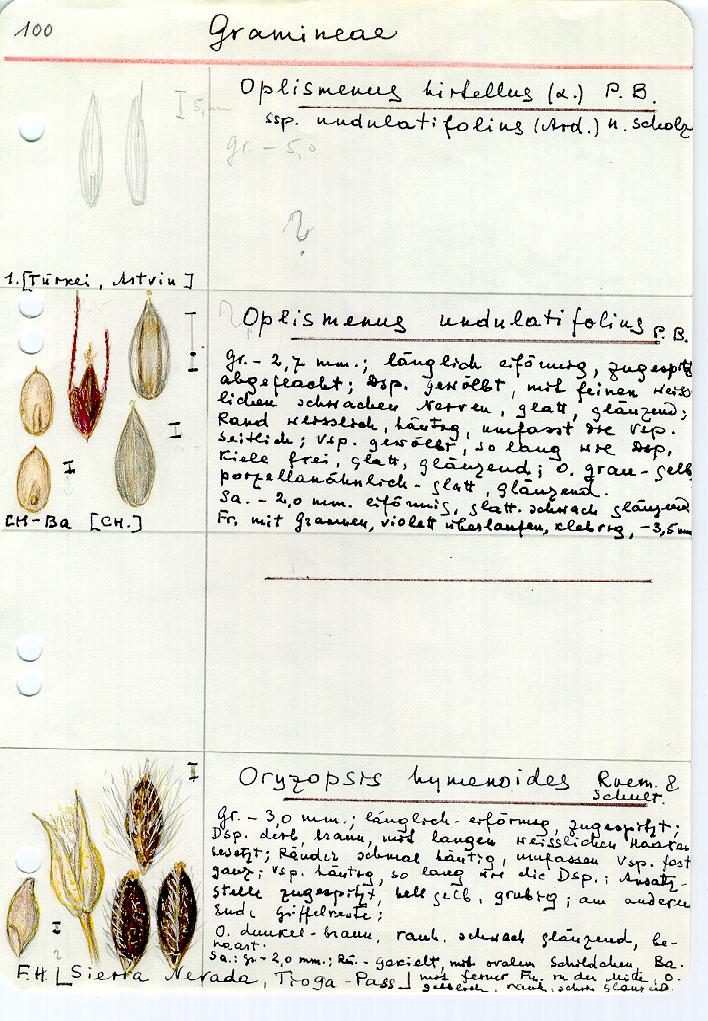 100
Gramineae
Oplismenus hirtellus (L.) P. B.
ssp. undulatifolius (Ard.) H. Scholz
I 5, mm
gr. - 5,0
?
1. [Türkei, Artvin]
Oplismenus undulatifolius P. B.
Gr. - 2,7 mm.; länglich eiförmig, zugespitzt
abgeflacht; Dsp. gewölbt, mit feinen weiss
lichen schwachen Nerven, glatt, glänzend;
Rand weisslich, häutig, umfasst die Vsp.
seitlich; Vsp. gewölbt, so lang wie Dsp.
Kiele frei, glatt, glänzend; O. grau-gelb
porzellanähnlich - glatt, glänzend.
Sa. - 2,0 mm. eiförmig, glatt. schwach glänzend
Fr. mit Grannen, violett überlaufen, klebrig, -3,5 mm
CH-Ba [CH.]
Oryzopsis hymenoides Roem. &
Schult.
Gr. - 3,0 mm.; länglich-eiförmig, zugespitzt;
Dsp. derb, braun, mit langen weisslichen Haaren
besetzt; Ränder schmal häutig, umfassen Vsp. fast
ganz; Vsp. häutig, so lang wie die Dsp.; Ansatz-
stelle zugespitzt, hell gelb, grubig; am anderen
Ende Griffelreste;
O. dunkel-braun, rauh. schwach glänzend, be-
haart.
Sa.: gr - 2,0 mm.; Rü. - gekielt, mit ovalem Schildchen, Ba.
mit feiner in der Mitte, O.
gelblich, rauh, schw. glänzend.
F.H. [Sierra Nevada, Tioga-Pass]